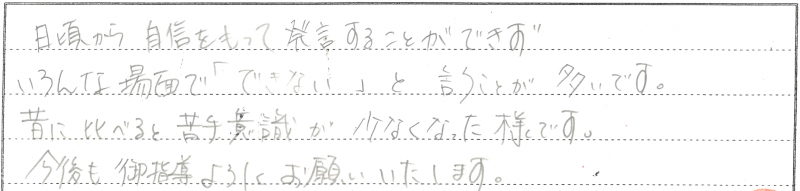 日頃から自信をもって発言することができず
いろんな場面で「できない」と言うことが多いです。
昔に比べると苦手意識が少なくなった様です。
今後も御指導よろしくお願いいたします。